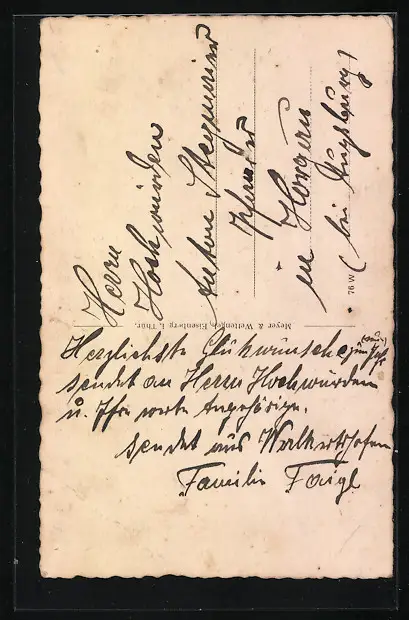 Herrn
Hochwürden
Anton Stegmeier
Pfarrer
in Horgau
(bei Augsburg)
Meyer & Wettengel, Eisenberg i. Thür.
76 W
Herzlichste Glükwünsche zum
sendet an Herrn Hochwürden
u. Ihre werte Angehörige.
sendet aus Walkertshofen
Familie Faigl